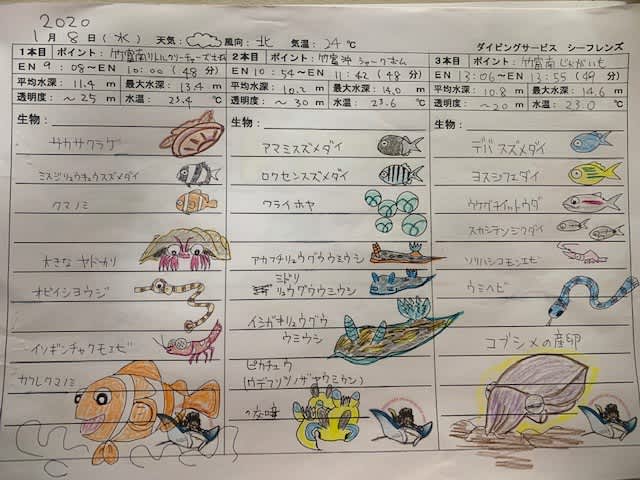 2020
1月8日(水) 天気: 風向: 北 気温: 24℃
ダイビングサービス シーフレンズ
1本目 ポイント: 竹富南リトルクリーチャーズ
EN 9:08~EN 10:00(48分)
平均水深: 11.4m 最大水深: 13.4m
透明度: ~25m 水温: 23.4℃
生物:
サカサクラゲ
ミスジリュウキュウスズメダイ
クマノミ
大きなヤドカリ
オビイシヨウジ
イソギンチャクモエビ
カクレクマノミ
2本目 ポイント: 竹富沖シャークホム
EN 10:54~EN 11:42(48分)
平均水深: 10.2m 最大水深: 14.0m
透明度: ~30m 水温: 23.6℃
生物:
アマミスズメダイ
ロクセンスズメダイ
ワライホヤ
アカフチリュウグウウミウシ
ミドリ
リュウグウウミウシ
イシガキリュウグウ
ウミウシ
ピカチュウ
(ウデフリツノザヤウミウシ)
の交接
3本目 ポイント: 竹富南じんがいも
EN 13:06~EN 13:55(49分)
平均水深: 10.8m 最大水深: 14.6m
透明度: ~20m 水温: 23.0℃
生物:
デバスズメダイ
ヨスジフエダイ
ウケグチイットウダイ
スカシテンジクダイ
ソリハシコモンエビ
ウミヘビ
コブシメの産卵